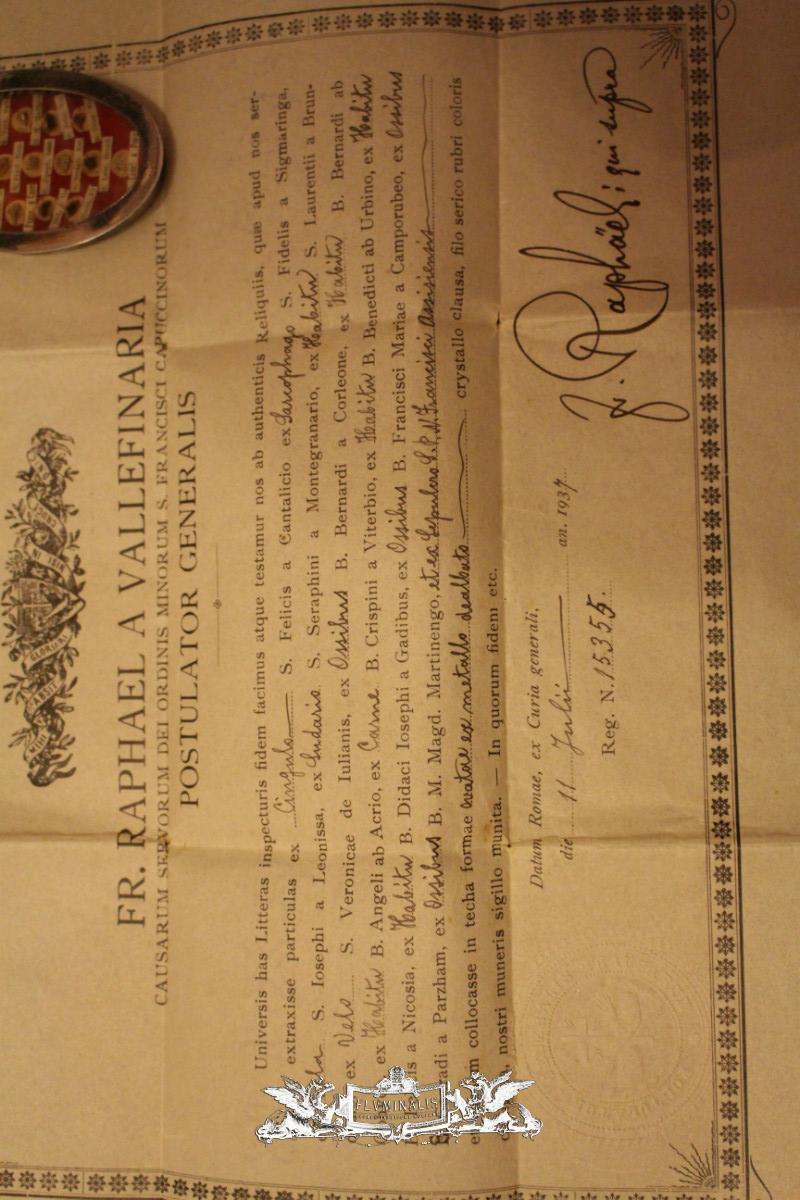 FR. RAPHAEL A VALLEFINARIA
CAUSARUM SERVORUM DEI ORDINIS MINORUM S. FRANCISCI CAPUCCINORUM
POSTULATOR GENERALIS
Universis has Litteras inspecturis fidem facimus atque testamur nos ab authenticis Reliquiis, quæ apud nos ser-
extraxisse particulas ex Cingulo S. Felicis a Cantalicio ex Sarcophago S. Fidelis a Sigmaringa,
S. Iosephi a Leonissa, ex Sudario S. Seraphini a Montegranario, ex Habitu S. Laurentii a Brun-
ex Velo S. Veronicae de Iulianis, ex Ossibus B. Bernardi a Corleone, ex Habitu B. Bernardi ab
ex Habitu B. Angeli ab Acrio, ex Carne B. Crispini a Viterbio, ex Habitu B. Benedicti ab Urbino, ex Habitu
is a Nicosia, ex Habitu B. Didaci Iosephi a Gadibus, ex Ossibus B. Francisci Mariae a Camporubeo, ex Ossibus
radi a Parzham, ex Ossibus B. M. Magd. Martinengo, et ex Sepulcro S. P. N. Francisci Assisiensis
m collocasse in techa formae ovatae ex metallo dealbato crystallo clausa, filo serico rubri coloris
, nostri muneris sigillo munita. — In quorum fidem etc.
Datum Romae, ex Curia generali,
die 11 Julii an. 1937
Reg. N. 15355.
f. Raphaël; qui supra
FLVMINALIS